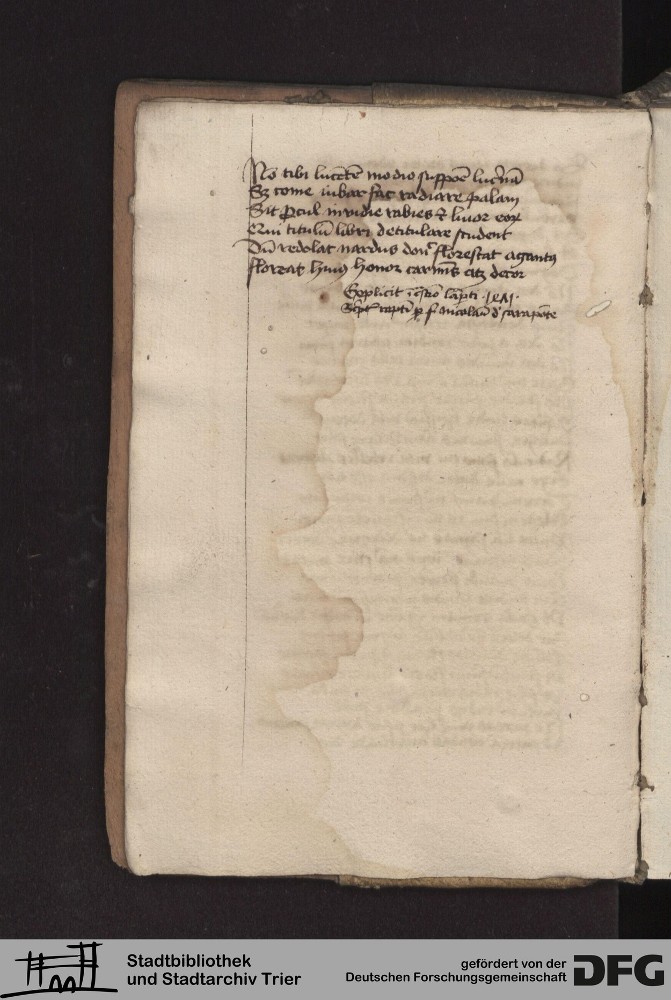 No tibi lucētē modio suppoē lucnā
Sz come iubar fac radiare palam
Sit procul inuidie rabies et liuor eorum
Qui titulū libri detitulare student
Dū redolat nardus donec florestat
floreat huius honor carminis atque decor
Explicit
Stadtbibliothek
und Stadtarchiv Trier
gefördert von der
Deutschen Forschungsgemeinschaft
DFG